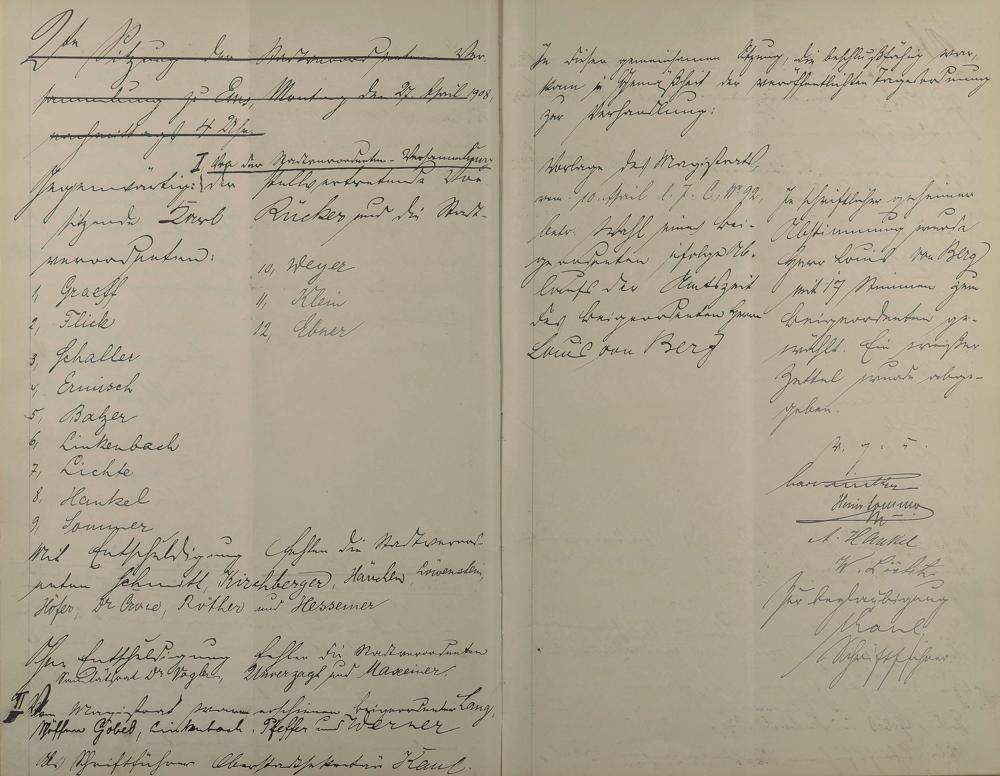 Die Sitzung der Stadtverordneten Ver-
sammlung zu Ems, Montag den 27 April 1908,
nachmittags 4 Uhr.
I Von der Stadtverordneten-Versammlung
Gegenwärtig: Der stellvertretende Vor-
sitzende Karl Rücker und die Stadt-
verordneten:
1, Graeff
2, Flick
3, Schaller
4, Ermisch
5, Balzer
6, Linkenbach
7, Lichte
8, Hankel
9, Sommer
10, Weyer
11, Klein
12, Ebner
Mit Entschuldigung fehlen die Stadtverord-
neten Schmitt, Kirchberger, Löwenstein,
Höfer, Dr Röther und Hessemer
Ohne Entschuldigung fehlen die Stadtverordneten
Sanitätsrat Dr Vogler, Unverzagt und Maxeiner.
II Vom Magistrat waren erschienen Beigeordneter Lang,
Schöffen Göbel, Linkenbach, Pfeffer und Werner
Als Schriftführer Oberstadtsekretär Kaul.
In dieser gemeinsamen Sitzung, die beschlußfähig war,
kam in Gemäßheit der veröffentlichten Tagesordnung
zur Verhandlung:
Vorlage des Magistrats,
vom 10. April l. J. C. No 92,
betr. Wahl eines Bei-
geordneten infolge Ab-
laufs der Amtszeit
des Beigeordneten Herrn
Louis von Berg
In schriftlicher geheimer
Abstimmung wurde
Herr Louis von Berg
mit 17 Stimmen zum
Beigeordneten ge-
wählt. Ein weißer
Zettel wurde abge-
geben.
v. g. u.
Karl Rücker
Sommer
A. Hankel
W. Lichte
Zur Beglaubigung
Kaul
Schriftführer